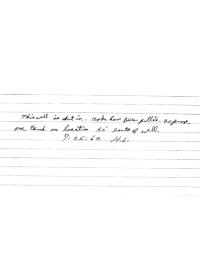 This well is shut in. Rods have been pulled.
one tank on location 50' south of well.
9-25-62 H.L.